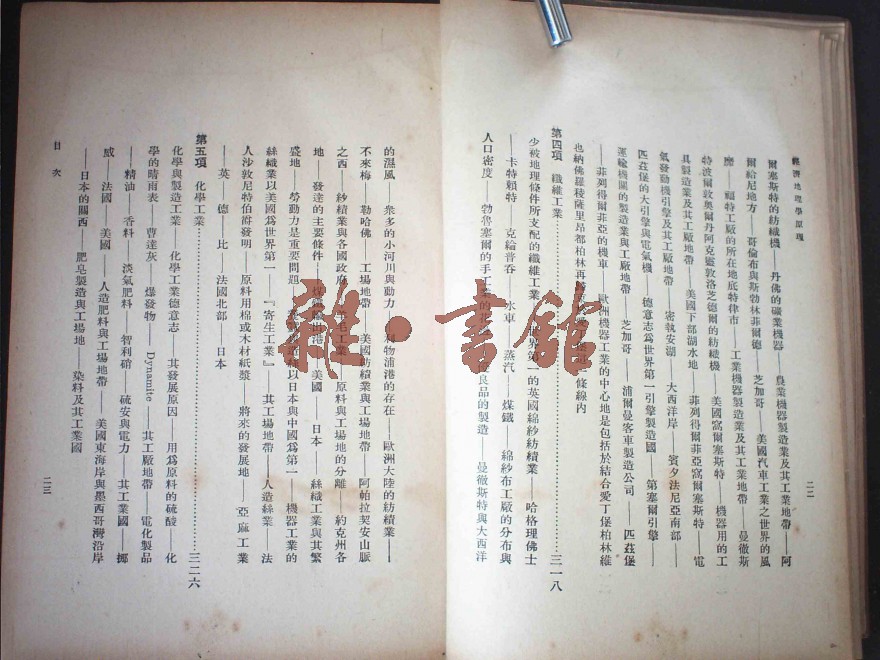 經濟地理學原理
二二
爾塞斯特的紡織機——丹佛的礦業機器——農業機器製造業及其工業地帶——阿
爾給尼地方——哥倫布與斯勃林菲爾德——芝加哥——美國汽車工業之世界的風
靡——福特工廠的所在地底特律市——工業機器製造業及其工業地帶——曼徹斯
特波爾敦奧爾丹阿克靈敦洛芝德爾的紡織機——美國窩爾塞斯特——機器用的工
具製造業及其工廠地帶——美國下部湖水地——菲列得爾菲亞窩爾塞斯特——電
氣發動機引擎及其工廠地帶——密執安湖——大西洋岸——賓夕法尼亞南部——
匹茲堡的大引擎與電氣機——德意志爲世界第一引擎製造國——第塞爾引擎——
運輸機關的製造業與工廠地帶——芝加哥——浦爾曼客車製造公司——匹茲堡
——菲列得爾菲亞的機車——歐洲機器工業的中心地是包括於結合愛丁堡柏林維
也納佛羅稜薩里昂都柏林再 條線內
第四項 纖維工業……三一八
少被地理條件所支配的纖維工業——世界第一的英國綿紗紡績業——哈格理佛士
——卡特賴特——克綸普吞——水車——蒸汽——煤鐵——綿紗布工廠的分布與
人口密度——勃魯塞爾的手工業的 良品的製造——曼徹斯特與大西洋
的濕風——衆多的小河川與動力——利物浦港的存在——歐洲大陸的紡績業——
不來梅——勒哈佛——工場地帶——美國紡績業與工場地帶——阿帕拉契安山脈
之西——紗績業與各國政府——羊毛工業——原料與工場地的分離——約克州各
地——發達的主要條件—— 輸出港——美國——日本——絲織工業與其繁
盛地——勞動力是重要問題—— 以日本與中國爲第一——機器工業的
絲織業以美國爲世界第一——『寄生工業』——其工場地帶——人造絲業——法
人沙敦尼特伯爵發明——原料用棉或木材紙漿——將來的發展地——亞麻工業
——英——德——比——法國北部——日本
第五項 化學工業……三二六
化學與製造工業——化學工業德意志——其發展原因——用爲原料的硫酸——化
學的晴雨表——曹達灰——爆發物——Dynamite——其工廠地帶——電化製品
——精油——香料——淡氣肥料——智利硝——硫安與電力——其工業國——挪
威——法國——美國——人造肥料與工場地帶——美國東海岸與墨西哥灣沿岸
——日本的關西——肥皂製造與工場地——染料及其工業國
目次
二三
雜·書館